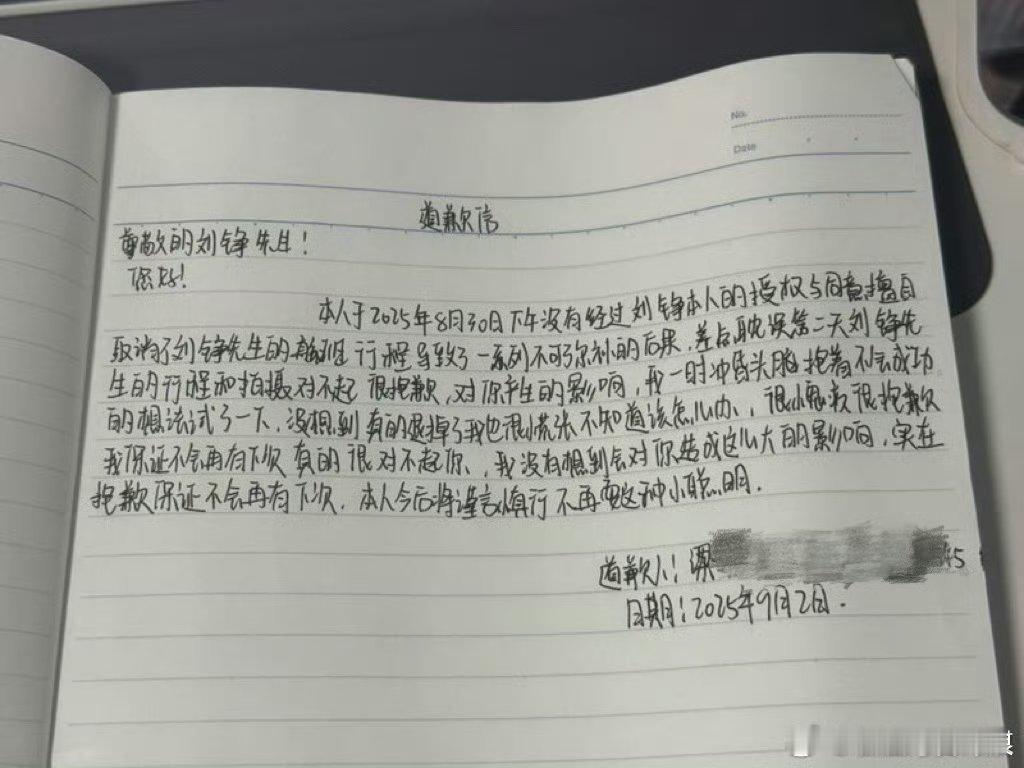 No.
Date
道歉信
尊敬的刘铮先生!
您好!
本人于2025年8月30日下午没有经过刘铮本人的授权与同意擅自
取消了刘铮先生的航班行程导致了一系列不可弥补的后果,差点耽误第二天刘铮先
生的行程和拍摄对不起很抱歉,对你产生的影响,我一时冲昏头脑抱着不会成功
的想法试了一下,没想到真的退掉了我也很慌张不知道该怎么办,很愧疚很抱歉
我保证不会再有下次真的很对不起你、我没有想到会对你造成这么大的影响,实在
抱歉保证不会再有下次.本人今后将谨言慎行不再耍这种小聪明.
道歉人:
45
日期:2025年9月2日.